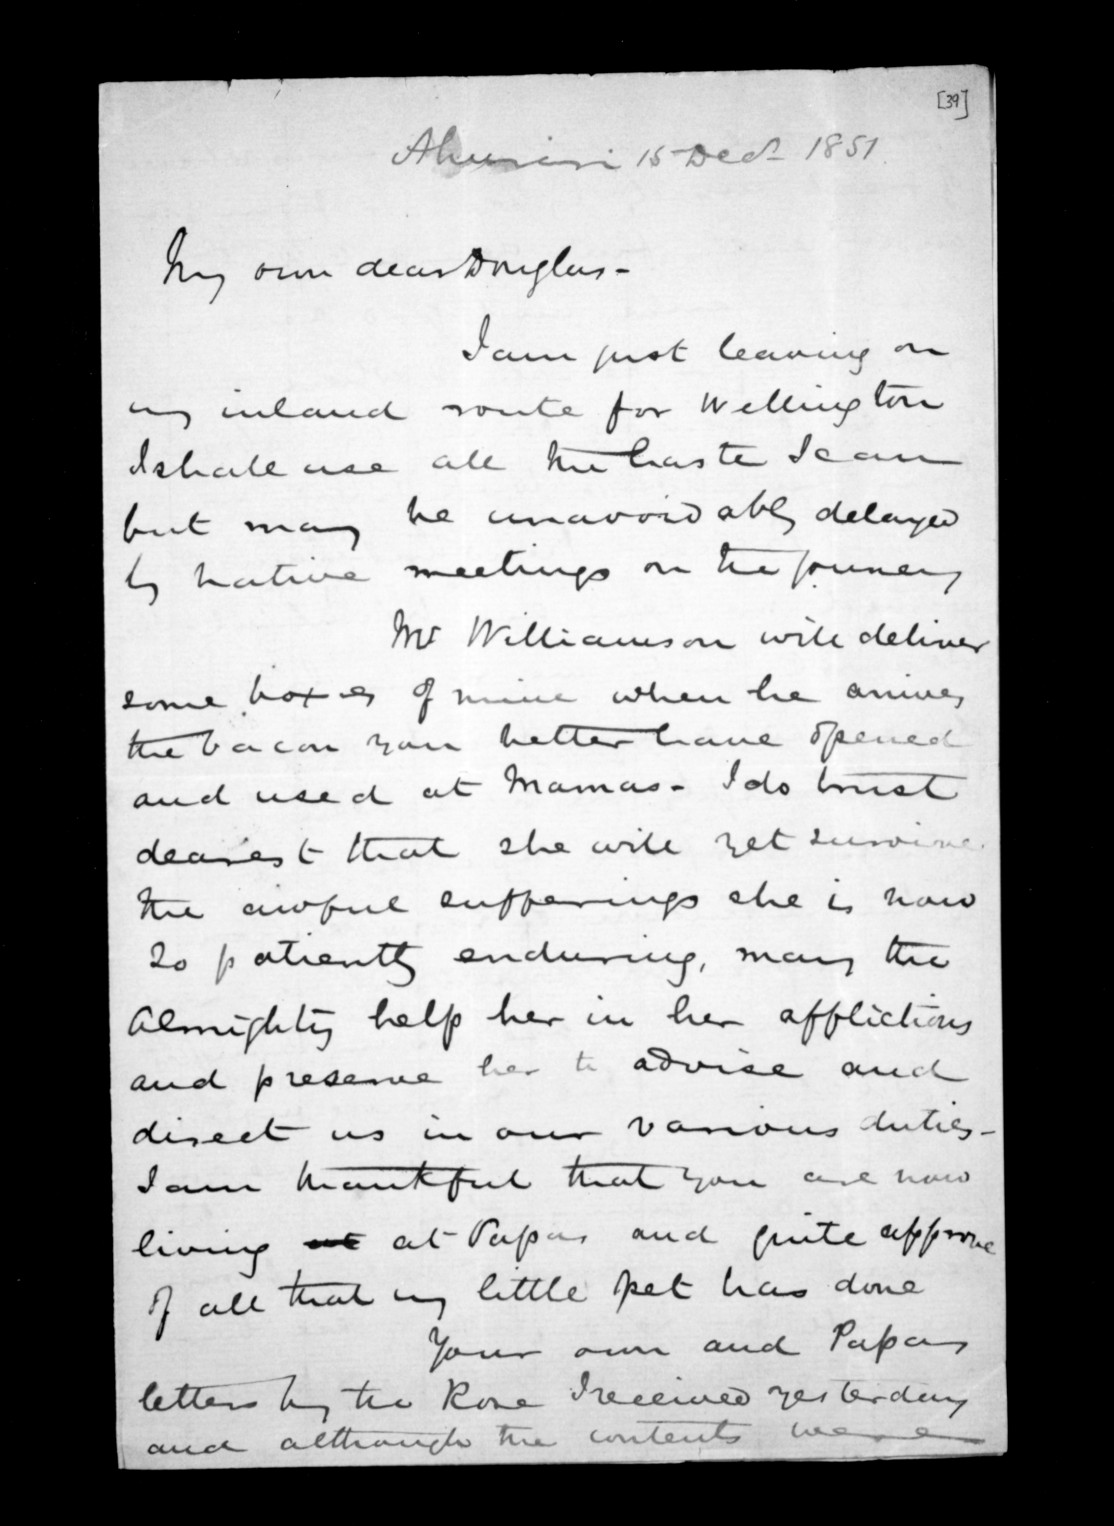 [39]
Ahuriri 15 Decr 1851
My own dear Douglas -
I am just leaving on
my inland route for Wellington
I shall use all the haste I can
but may be unavoidably delayed
by native meetings on the journey
Mr Williamson will deliver
some boxes of mine when he arrives
the bacon you better have opened
and used at Mamas - I do trust
dearest that she will yet survive
the awful sufferings she is now
so patiently enduring, may the
Almighty help her in her afflictions
and preserve her to advise and
direct us in our various duties -
I am thankful that you are now
living at at Papas and quite approve
of all that my little pet has done
Your own and Papas
letters by the Rose I received yesterday
and although the contents were